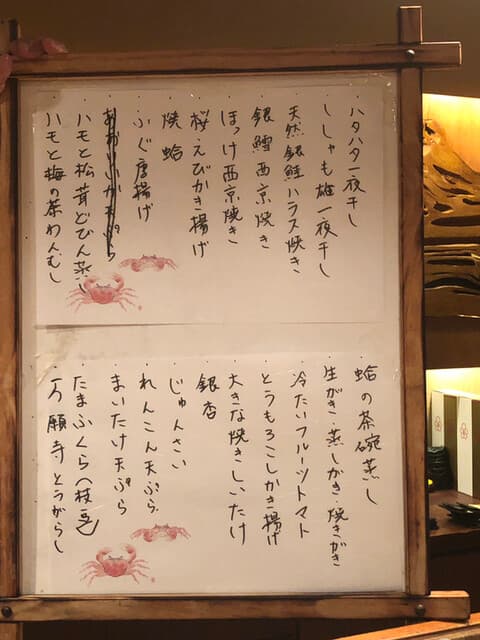 ・ハタハタ一夜干し
・ししゃも雄一夜干し
・天然銀鮭ハラス焼き
・銀鱈西京焼き
・ほっけ西京焼き
・桜えびかき揚げ
・焼蛤
・ふぐ唐揚げ
・ハモと松茸どびん蒸し
・ハモと梅の茶わんむし
・蛤の茶碗蒸し
・生がき・蒸しがき・焼きがき
・冷たいフルーツトマト
・とうもろこしかき揚げ
・大きな焼きしいたけ
・銀杏
・じゅんさい
・れんこん天ぷら
・まいたけ天ぷら
・たまふくら(枝豆)
・万願寺とうがらし